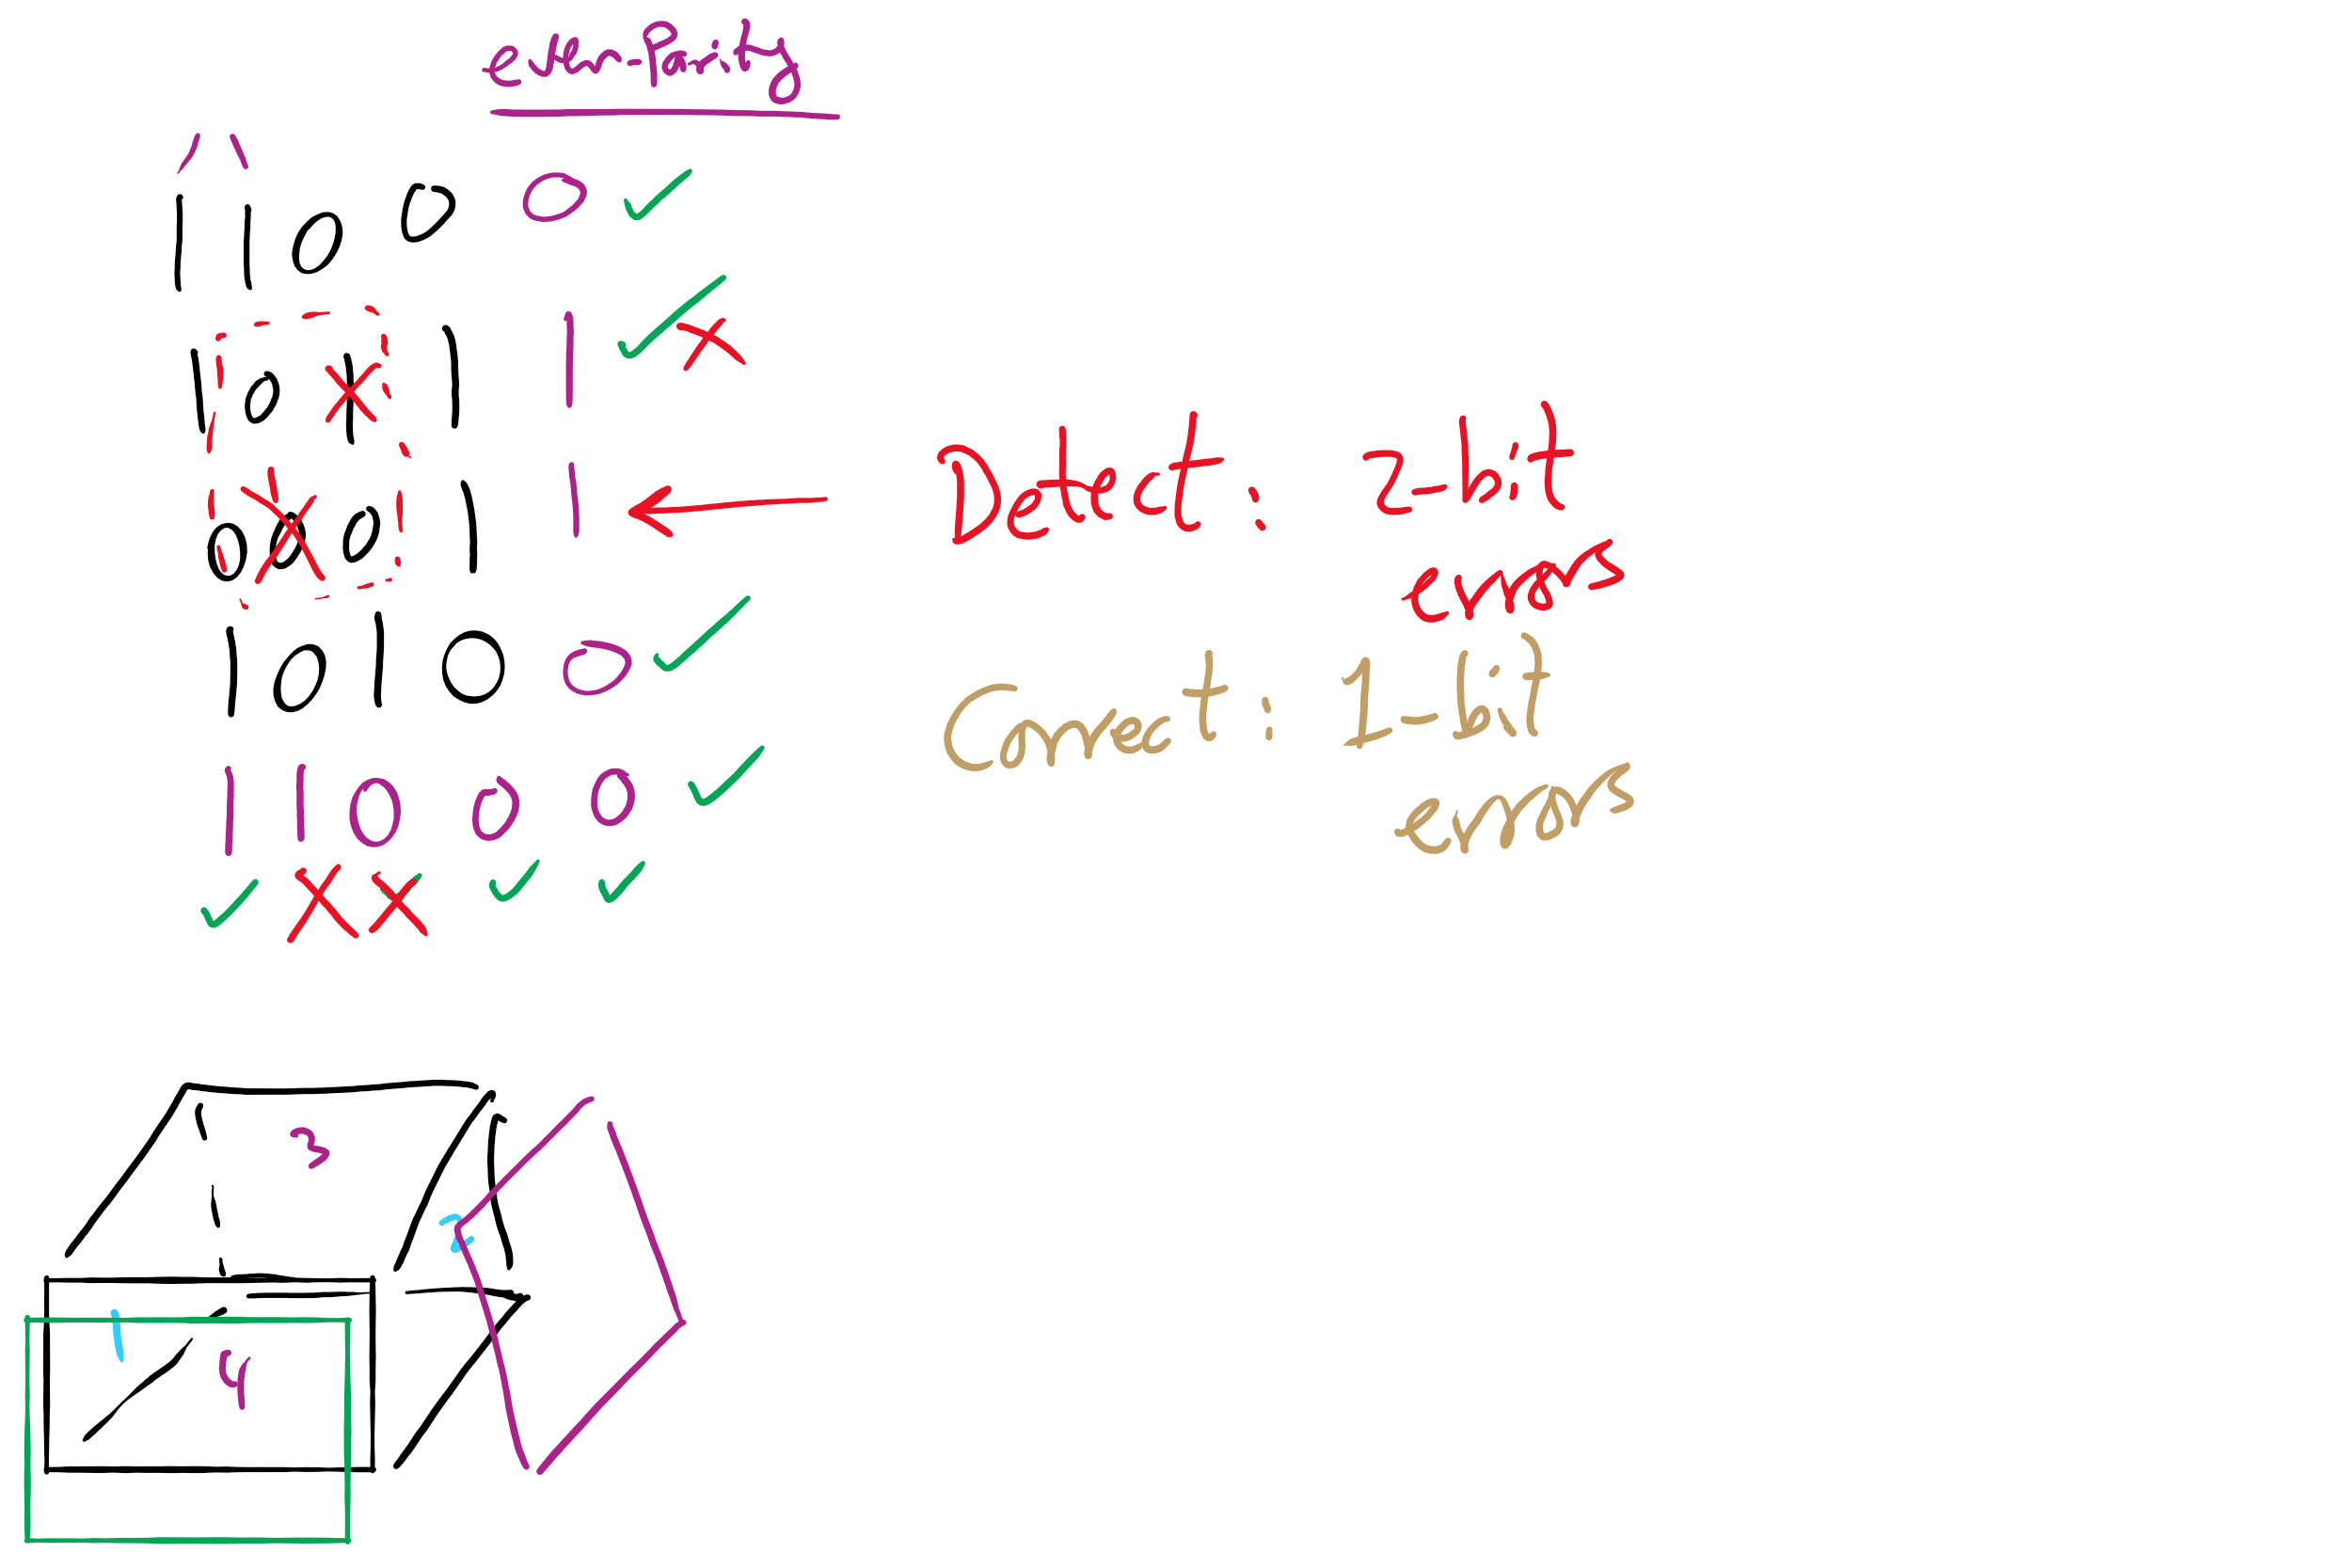 even-Parity
1 1 0 0 0
1 0 1 1 1
0 0 0 1 1
1 0 1 0 0
1 1 0 0 0
Detect: 2-bit
errors
Correct: 1-bit
errors
3
2
1
4